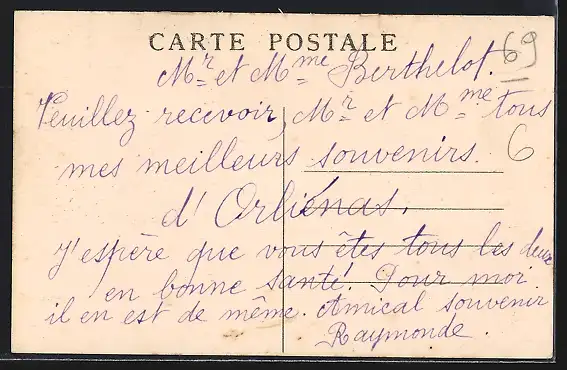 CARTE POSTALE
69
Mr et Mme Berthelot.
Veuillez recevoir, Mr et Mme tous
mes meilleurs souvenirs.
6
d'Orliénas.
J'espère que vous êtes tous les deux
en bonne santé. Pour moi
il en est de même. Amical souvenir
Raymonde.